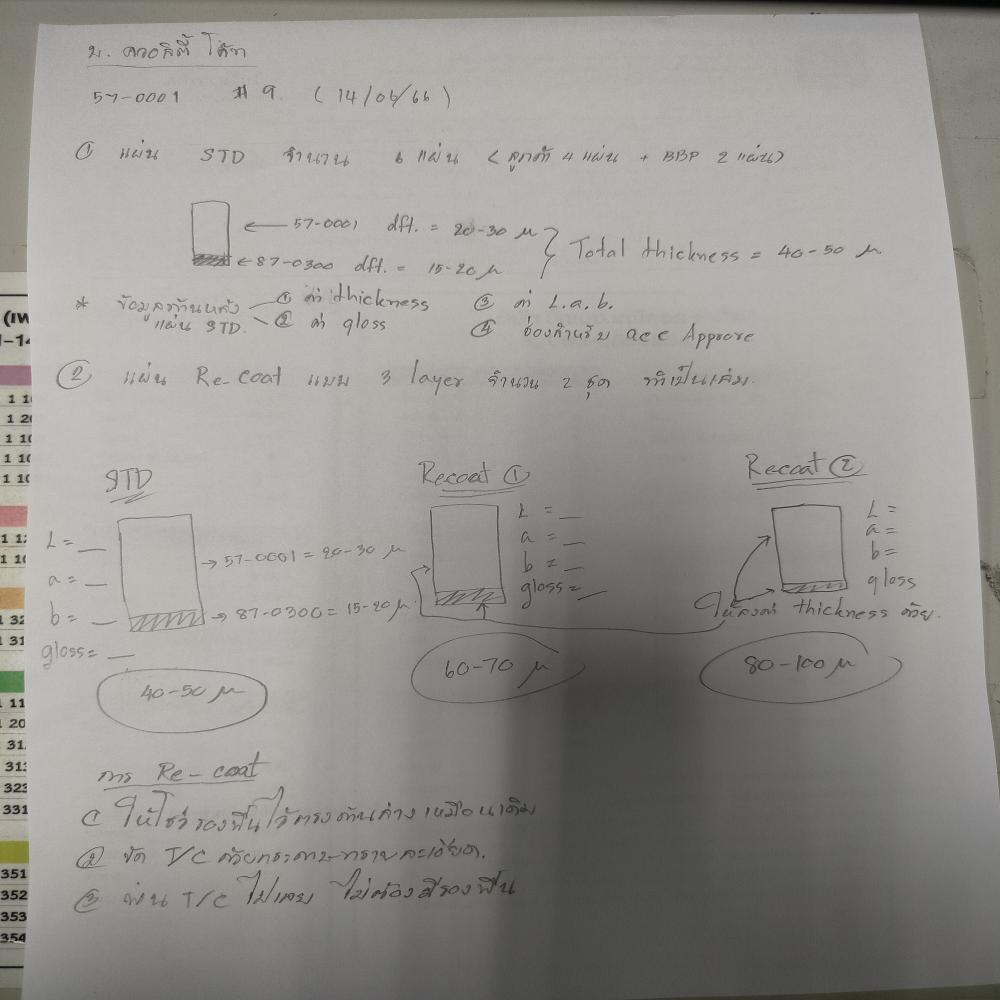 บ. ควอลิตี้ โค้ท
57-0001 # 9 (14/06/66)
① แผ่น STD จำนวน 6 แผ่น (ลูกค้า 4 แผ่น + BBP 2 แผ่น)
57-0001 dft. = 20-30 μ
87-0300 dft. = 15-20 μ
Total thickness = 40-50 μ
* ข้อมูลด้านหลัง แผ่น STD.
① ค่า thickness
② ค่า gloss
③ ค่า L.a.b.
④ ช่องสำหรับ Approve
② แผ่น Re-coat แบบ 3 layer จำนวน 2 ชุด ทำเป็นเล่ม.
STD
L = __
a = __
b = __
gloss = __
57-0001 = 20-30 μ
87-0300 = 15-20 μ
40-50 μ
Recoat ①
L = __
a = __
b = __
gloss = __
60-70 μ
Recoat ②
L =
a =
b =
gloss
ให้ลงค่า thickness ด้วย.
80-100 μ
การ Re-coat
① ให้โชว์รองพื้นไว้ตรงด้านล่างเหมือนเดิม
② ขัด T/C ด้วยกระดาษทรายละเอียด.
③ พ่น T/C ไปเลย ไม่ต้องสีรองพื้น
(เพ
1 10
1 20
1 10
1 10
1 10
351
352
353
354